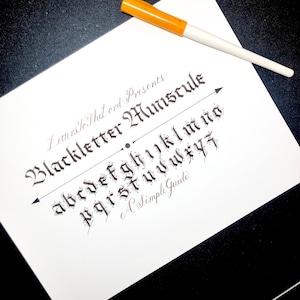 LettersToThLord Presents
Blackletter Miniscule
abcdefghijklmno
pqrstuvwxyz
A Simple Guide